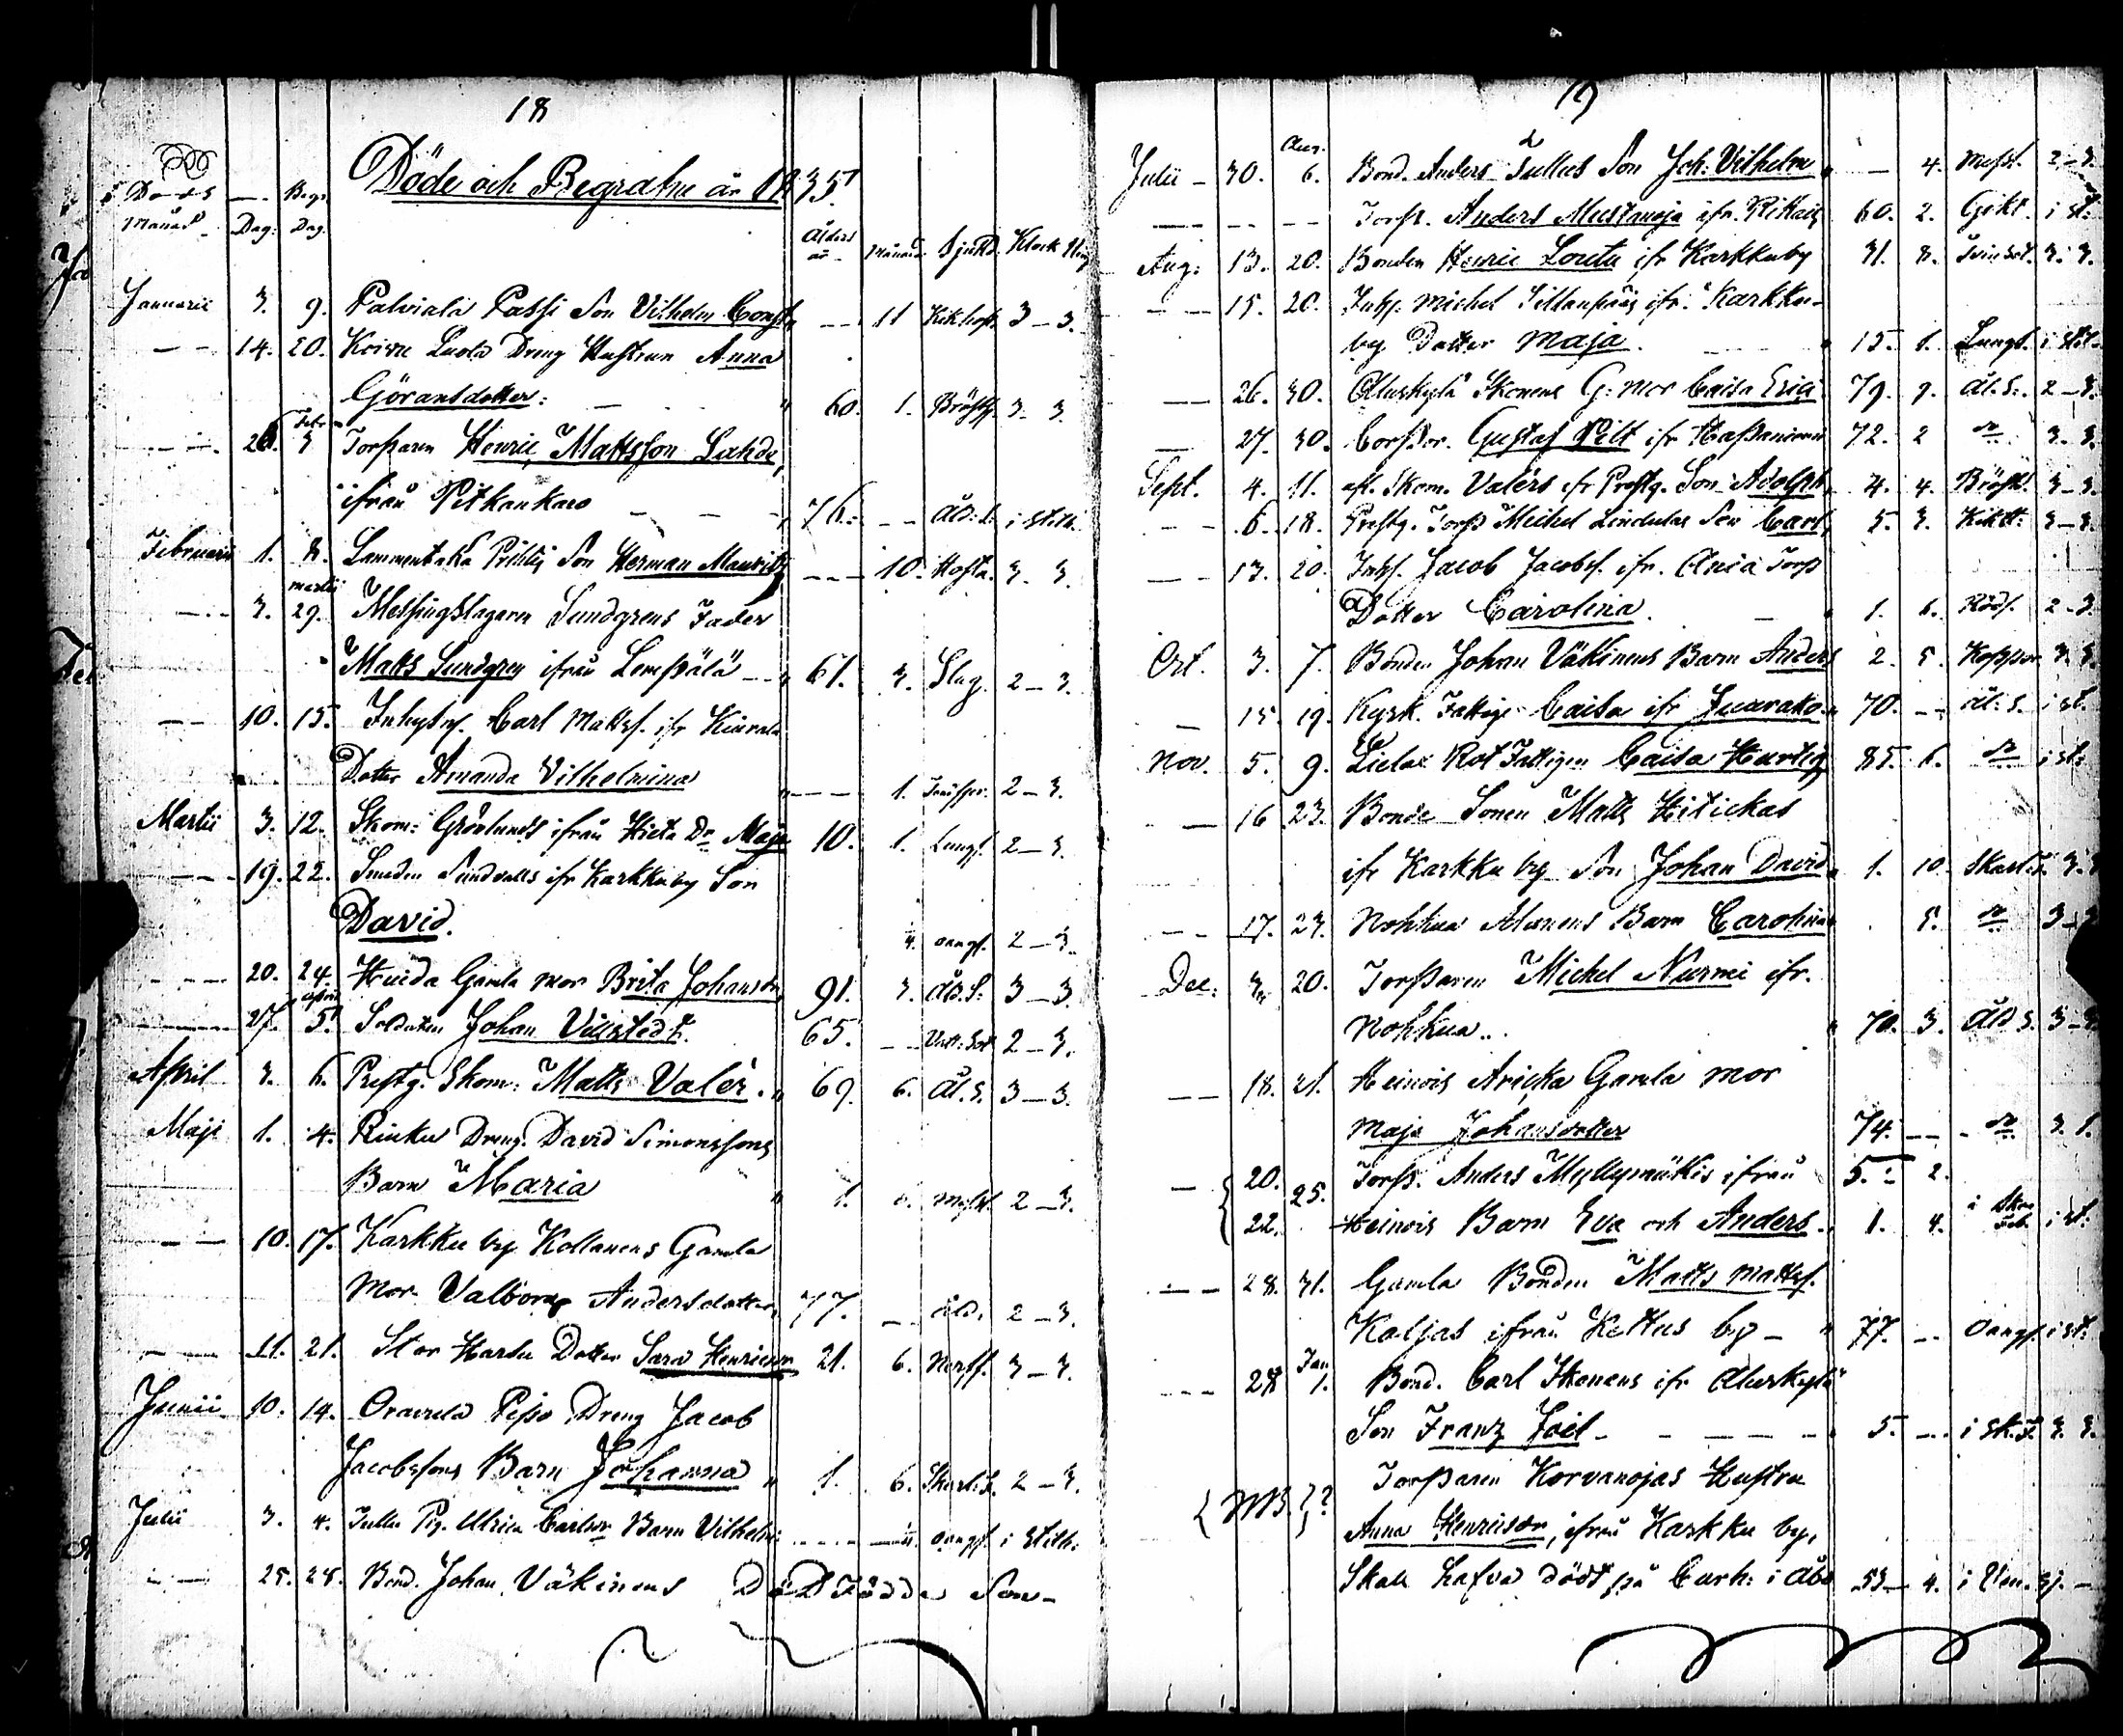 18
Döde och Begrafne år 1835
Döds — Begr.
Månad Dag: Dag. Ålders år Månad. Sjukd. Klock
Januarii 3. 9. Palviala Passi Son Vilhelm Const. — 11 Kikhost. 3–3.
— 14. 20. Koivu Luota Dreng Hustrun Anna
Göransdotter: 60. 1. Bröstf. 3. 3.
— 26. Febr. 3 Torparen Henric Mattsson Lahde,
ifrån Pitkankares 76. — Åld: i stillh.
Februarii 1. 8. Son Herman Mauritz — 10. Hosta. 3. 3.
— 3. martii 29. Messingslagaren Sundgrens Fader
Matts Sundgren ifrån Lempälä 61. 3. Slag. 2–3.
— 10. 15. Inhyss. Carl Mattss. ifr
Dotter Amanda Vilhelmina — 1. 2–3.
Martii 3. 12. Skom: Grönlunds ifrån Hieta Dr Maja 10. 1. Lungs. 2–3.
— 19. 22. Smeden Sundvalls ifr Karkkuby Son
David. 4. oangf. 2–3.
— 20. 24. Gamla mor Brita Johansdr 91. 3. Åld.S: 3–3.
— 27. april 5. Soldaten Johan 65. — 2–3.
April 3. 6. Prestg. Skom: Matts Valér. 69. 6. Ål.S. 3–3.
Maji 1. 4. Rieku Dreng David Simonssons
Barn Maria 1. 2–3.
— 10. 17. Karkku by Kollanens Gamla
Mor Valborg Andersdotter, 77. — åld. 2–3.
— 11. 21. Stor Harsu Dotter Sara Henricsdr 21. 6. Nerff. 3–3.
Junii 10. 14. Oravula Pipo Dreng Jacob
Jacobssons Barn Johanna 1. 6. Skarl.f. 2–3.
Julii 3. 4. Pig. Ulrica Carlsdr Barn Vilhelm: oangf. i stillh.
— 25. 28. Bond. Johan Väkinens Död Födde Son–
19
Julii – 30. Aug. 6. Bond. Anders Tullus Son Joh: Vilhelm — 4. Messl. 2–3.
— — — Torp. Anders Mustanoja ifr. 60. 2. Gikt. i st.
Aug: 13. 20. Bonden Henric Loutu ifr Karkkuby 31. 8. 3. 3.
— 15. 20. Inhs. Michel Sillanpääs ifr. Karkku-
by Dotter Maja. 15. 1. Lungs. i still.
— 26. 30. Aluskylä Ikonens G: mor Caisa Erici 79. 9. Ål.S. 2–3.
— 27. 30. Corpor. Gustaf Pilt ifr 72. 2 do 3. 3.
Sept. 4. 11. afl. Skom. Valérs ifr Prestg. Son Adolph, 4. 4. Bröstf. 3–3.
— 6. 18. Prestg. Torp Michel Lindulas Son Carl, 5. 3. Kikh: 3–3.
— 13. 20. Inhs. Jacob Jacobs. ifr. Torp
Dotter Carolina. 1. 6. Röds. 2–3.
Oct. 3. 7. Bonden Johan Väkinens Barn Anders 2. 5. Koppor 3. 3.
— 15. 19. Kyrk. Fattige Caisa ifr Juarako 70. — ål: S. i st.
Nov. 5. 9. Lielax Rot Fattigen Caisa Hartig 85. 6. do i st:
— 16 23. Bonde Sonen Matts Hiickas
ifr Karkku by Son Johan David 1. 10. Skarl:F. 3.
— 17. 23. Nohkua Alanens Barn Carolina . 5. do 3–3
Dec: 3 20. Torparen Michel Nurmi ifr.
Nohkua.. 70. 3. Åld S. 3–3
— 18. 21. Heinois Aricka Gamla mor
Maja Johansdotter 74. — do 3. 1.
— 20. 25. Torp. Anders Myllymäkis ifrån 5. 2.
22. Heinois Barn Eva och Anders. 1. 4. i Skar Feb. i st:
— 28. 31. Gamla Bonden Matts Mattss.
Koljas ifrån Kettus by – 77. — Oangf. i st:
— 28 Jan 1. Bond. Carl Ikonens ifr Aluskylä
Son Franz Joel – 5. — i sk.F. 3. 3.
{NB.}? Torparen Korvanojas Hustru
Anna Henricsdr, ifrån Karkku by,
Skall hafva dödt på Curh: i Åbo 53– 4. i Ven. sj. –